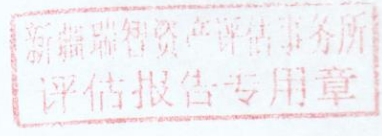 新疆瑞智资产评估事务所
评估报告专用章